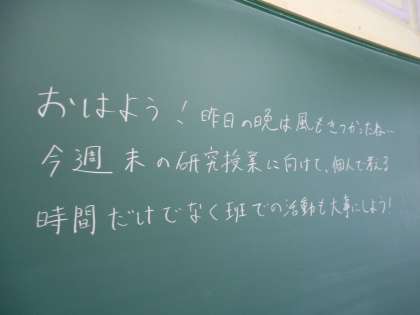 おはよう！昨日の晩は風もきつかったね…
今週末の研究授業に向けて、個人で考える
時間だけでなく班での活動も大事にしよう！